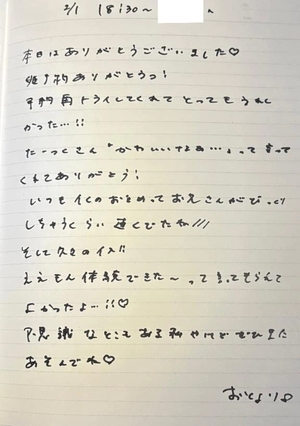 2/1 18:30〜
本日はありがとうございました♡
ありがとうっ!
トライしてくれてとってもうれし
かった…!!
たーっくさん"かわいいなぁ…"って言って
くれてありがとう!
いつもイくのおとめってお兄さんがびっくり
しちゃうくらい速くでたね///
そして久々のイス!!
ええもん体験できた〜って言ってもらえて
よかったよ…!!♡
不思議なところある私やけどぜひまた
あそんでね♡
おとより